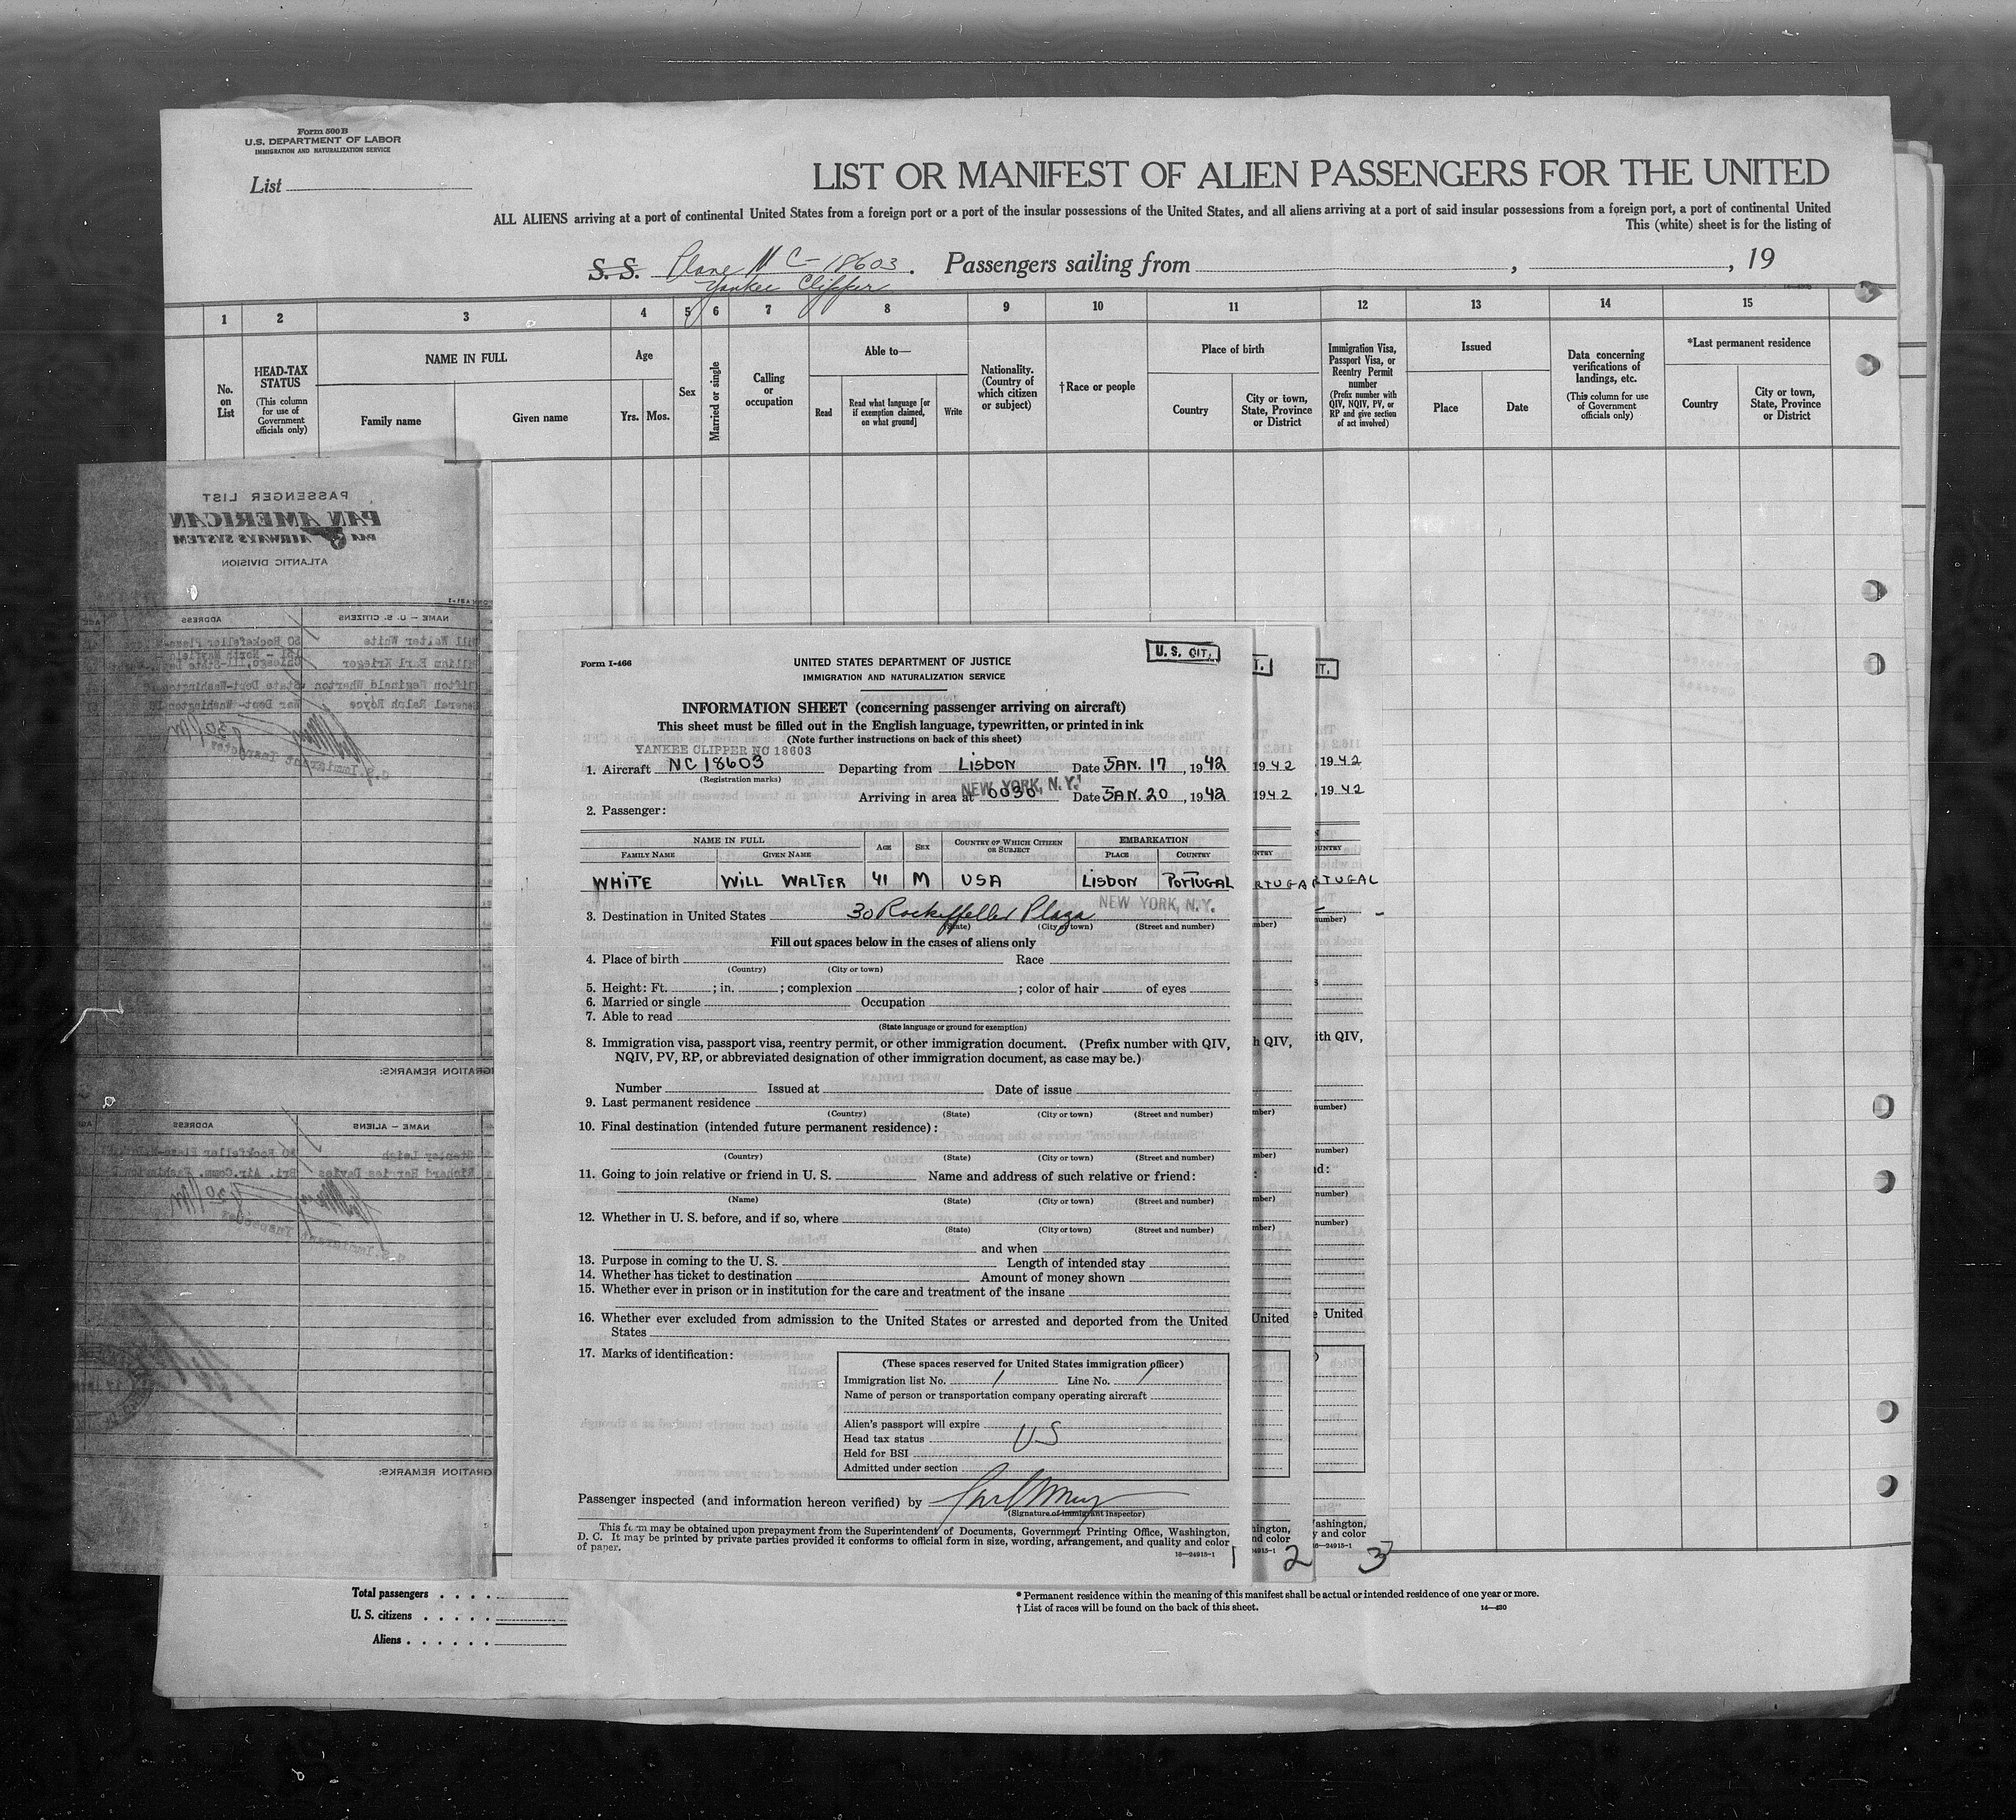 Form 500B
U.S. DEPARTMENT OF LABOR
IMMIGRATION AND NATURALIZATION SERVICE
List
LIST OR MANIFEST OF ALIEN PASSENGERS FOR THE UNITED
ALL ALIENS arriving at a port of continental United States from a foreign port or a port of the insular possessions of the United States, and all aliens arriving at a port of said insular possessions from a foreign port, a port of continental United
This (white) sheet is for the listing of
S. S. Plane N C-18603. Passengers sailing from , , 19
Yankee Clipper
1 2 3 4 5 6 7 8 9 10 11 12 13 14 15
No. on List
HEAD-TAX STATUS
(This column for use of Government officials only)
NAME IN FULL
Family name
Given name
Age
Yrs. Mos.
Sex
Married or single
Calling or occupation
Able to—
Read
Read what language [or if exemption claimed, on what ground]
Write
Nationality. (Country of which citizen or subject)
†Race or people
Place of birth
Country
City or town, State, Province or District
Immigration Visa, Passport Visa, or Reentry Permit number
(Prefix number with QIV, NQIV, PV, or RP and give section of act involved)
Issued
Place
Date
Data concerning verifications of landings, etc.
(This column for use of Government officials only)
*Last permanent residence
Country
City or town, State, Province or District
PASSENGER LIST
PAN AMERICAN
PAA AIRWAYS SYSTEM
ATLANTIC DIVISION
NAME — U. S. CITIZENS ADDRESS
Will Walter White 30 Rockefeller Plaza
William Earl Krieger Chicago, Ill-State Dept.
Clifton Reginald Wharton State Dept-Washington
General Ralph Royce War Dept- Washington
7:30 PM
U.S. Immigrant Inspector
REMARKS:
NAME — ALIENS ADDRESS
Stanley Leigh 30 Rockfeller Plaza
Richard Davies Bri. Air.Comm. Washington
7:30 PM
U.S. Immigrant Inspector
REMARKS:
Form I-466
UNITED STATES DEPARTMENT OF JUSTICE
IMMIGRATION AND NATURALIZATION SERVICE
U. S. CIT.
INFORMATION SHEET (concerning passenger arriving on aircraft)
This sheet must be filled out in the English language, typewritten, or printed in ink
(Note further instructions on back of this sheet)
YANKEE CLIPPER NC 18603
1. Aircraft NC18603 Departing from LISBON Date JAN. 17, 1942
(Registration marks)
NEW YORK, N.Y.
Arriving in area at 0030 Date JAN. 20, 1942
2. Passenger:
NAME IN FULL
FAMILY NAME GIVEN NAME AGE SEX COUNTRY OF WHICH CITIZEN OR SUBJECT EMBARKATION
PLACE COUNTRY
WHITE WILL WALTER 41 M USA LISBON PORTUGAL
3. Destination in United States 30 Rockeffeller Plaza NEW YORK, N.Y.
(State) (City or town) (Street and number)
Fill out spaces below in the cases of aliens only
4. Place of birth Race
(Country) (City or town)
5. Height: Ft. ; in. ; complexion ; color of hair of eyes
6. Married or single Occupation
7. Able to read
(State language or ground for exemption)
8. Immigration visa, passport visa, reentry permit, or other immigration document. (Prefix number with QIV,
NQIV, PV, RP, or abbreviated designation of other immigration document, as case may be.)
Number Issued at Date of issue
9. Last permanent residence
(Country) (State) (City or town) (Street and number)
10. Final destination (intended future permanent residence):
(Country) (State) (City or town) (Street and number)
11. Going to join relative or friend in U. S. Name and address of such relative or friend:
(Name) (State) (City or town) (Street and number)
12. Whether in U. S. before, and if so, where
(State) (City or town) (Street and number)
and when
13. Purpose in coming to the U. S. Length of intended stay
14. Whether has ticket to destination Amount of money shown
15. Whether ever in prison or in institution for the care and treatment of the insane
16. Whether ever excluded from admission to the United States or arrested and deported from the United
States
17. Marks of identification:
(These spaces reserved for United States immigration officer)
Immigration list No. 1 Line No. 1
Name of person or transportation company operating aircraft
Alien's passport will expire
Head tax status US
Held for BSI
Admitted under section
Passenger inspected (and information hereon verified) by
(Signature of immigrant inspector)
This form may be obtained upon prepayment from the Superintendent of Documents, Government Printing Office, Washington,
D. C. It may be printed by private parties provided it conforms to official form in size, wording, arrangement, and quality and color
of paper.
16—24915-1
1 2 3
Total passengers
U. S. citizens
Aliens
* Permanent residence within the meaning of this manifest shall be actual or intended residence of one year or more.
† List of races will be found on the back of this sheet.
14—430